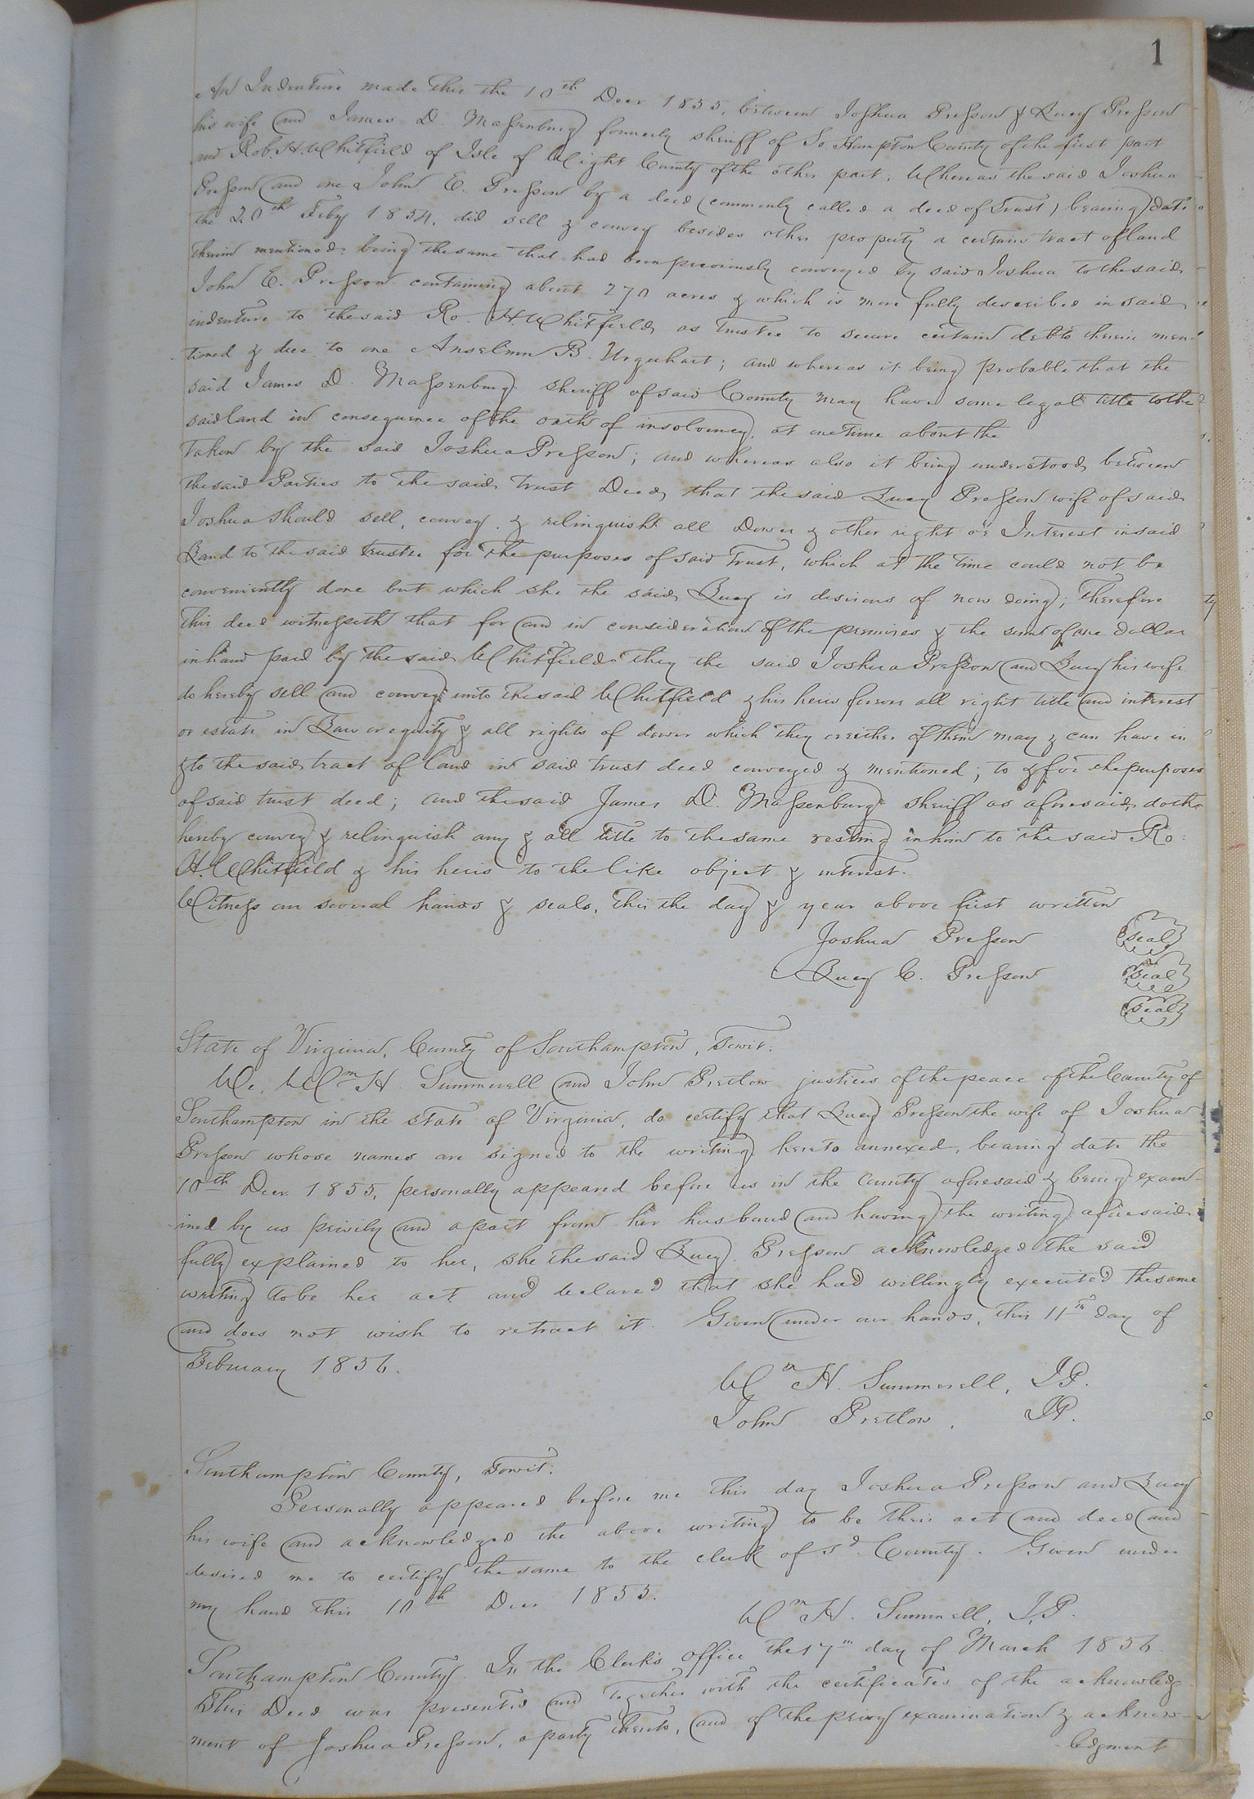 1
An Indenture made this the 10th Decr 1855, between Joshua Presson & Lucy Presson
his wife and James D. Massenburg formerly sheriff of So. Hampton County of the first part
and Rob. H. Whitfield of Isle of Wight County of the other part. Whereas the said Joshua
Presson and one John E. Presson by a deed (commonly called a deed of Trust) bearing date
the 20th Feby 1854, did sell & convey besides other property a certain tract of land
therein mentioned being the same that had been previously conveyed by said Joshua to the said
John E. Presson containing about 270 acres & which is more fully described in said
indenture to the said Ro. H. Whitfield as trustee to secure certain debts therein men
tioned & due to one Anselmn B. Urquhart; and whereas it being probable that the
said James D. Massenburg sheriff of said County may have some legal title to the
said land in consequence of the oath of insolvency, at one time about the
taken by the said Joshua Presson; and whereas also it being understood between
the said Parties to the said trust Deed, that the said Lucy Presson wife of said
Joshua should sell, convey & relinquish all Dower & other right or Interest in said
Land to the said trustee for the purposes of said Trust, which at the time could not be
conveniently done but which she the said Lucy is desirous of now doing; Therefore
This deed witnesseth that for and in consideration of the premises & the sum of one dollar
in hand paid by the said Whitfield they the said Joshua Presson and Lucy his wife
do hereby sell and convey unto the said Whitfield & his heirs forever all right title and interest
or estate in Law or equity & all rights of dower which they or either of them may & can have in
& to the said tract of land in said trust deed conveyed & mentioned; to & for the purposes
of said trust deed; and the said James D. Massenburg sheriff as aforesaid doth
hereby convey & relinquish any & all title to the same resting in him to the said Ro.
H. Whitfield & his heirs to the like object & interest.
Witness our several hands & seals, this the day & year above first written
Joshua Presson seal
Lucy C. Presson seal
seal
State of Virginia, County of Southampton, Towit.
We, Wm H. Summerell and John Pretlow justices of the peace of the County of
Southampton in the state of Virginia, do certify that Lucy Presson the wife of Joshua
Presson whose names are signed to the writing hereto annexed, bearing date the
10th Decr 1855, personally appeared before us in the County aforesaid & being exam-
ined by us privily and apart from her husband and having the writing aforesaid
fully explained to her, she the said Lucy Presson acknowledged the said
writing to be her act and declared that she had willingly executed the same
and does not wish to retract it. Given under our hands, this 11th day of
February 1856.
Wm H. Summerell, J.P.
John Pretlow, J.P.
Southampton County, Towit.
Personally appeared before me this day Joshua Presson and Lucy
his wife and acknowledged the above writing to be their act and deed and
desired me to certify the same to the clerk of sd County. Given under
my hand this 10th Decr 1855.
Wm H. Summrell, J.P.
Southampton County. In the Clerk's office the 17th day of March 1856
This Deed was presented and together with the certificates of the acknowledg
ment of Joshua Presson, a party thereto, and of the privy examination & acknow-
ledgment